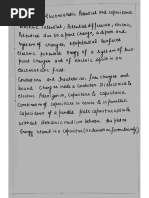 Electrostatic Potential and Capacitance
Electric Potential, Potential difference, electric
Potential due to a point charge, a dipole and
system of charges, equipotential Surfaces
Electric potential Energy of a system of two-
point charges and of electric dipole in an
Electrostatic field.
Conductors and Insulators, free charges and
bound charges inside a conductor. Dielectrics &
electric Polarisation, Capacitors & Capacitance,
Combination of capacitors in series & in parallel
Capacitance of a parallel plate capacitor with and
without dielectric medium between the plates
Energy stored in a capacitor (no derivation, formulae only)